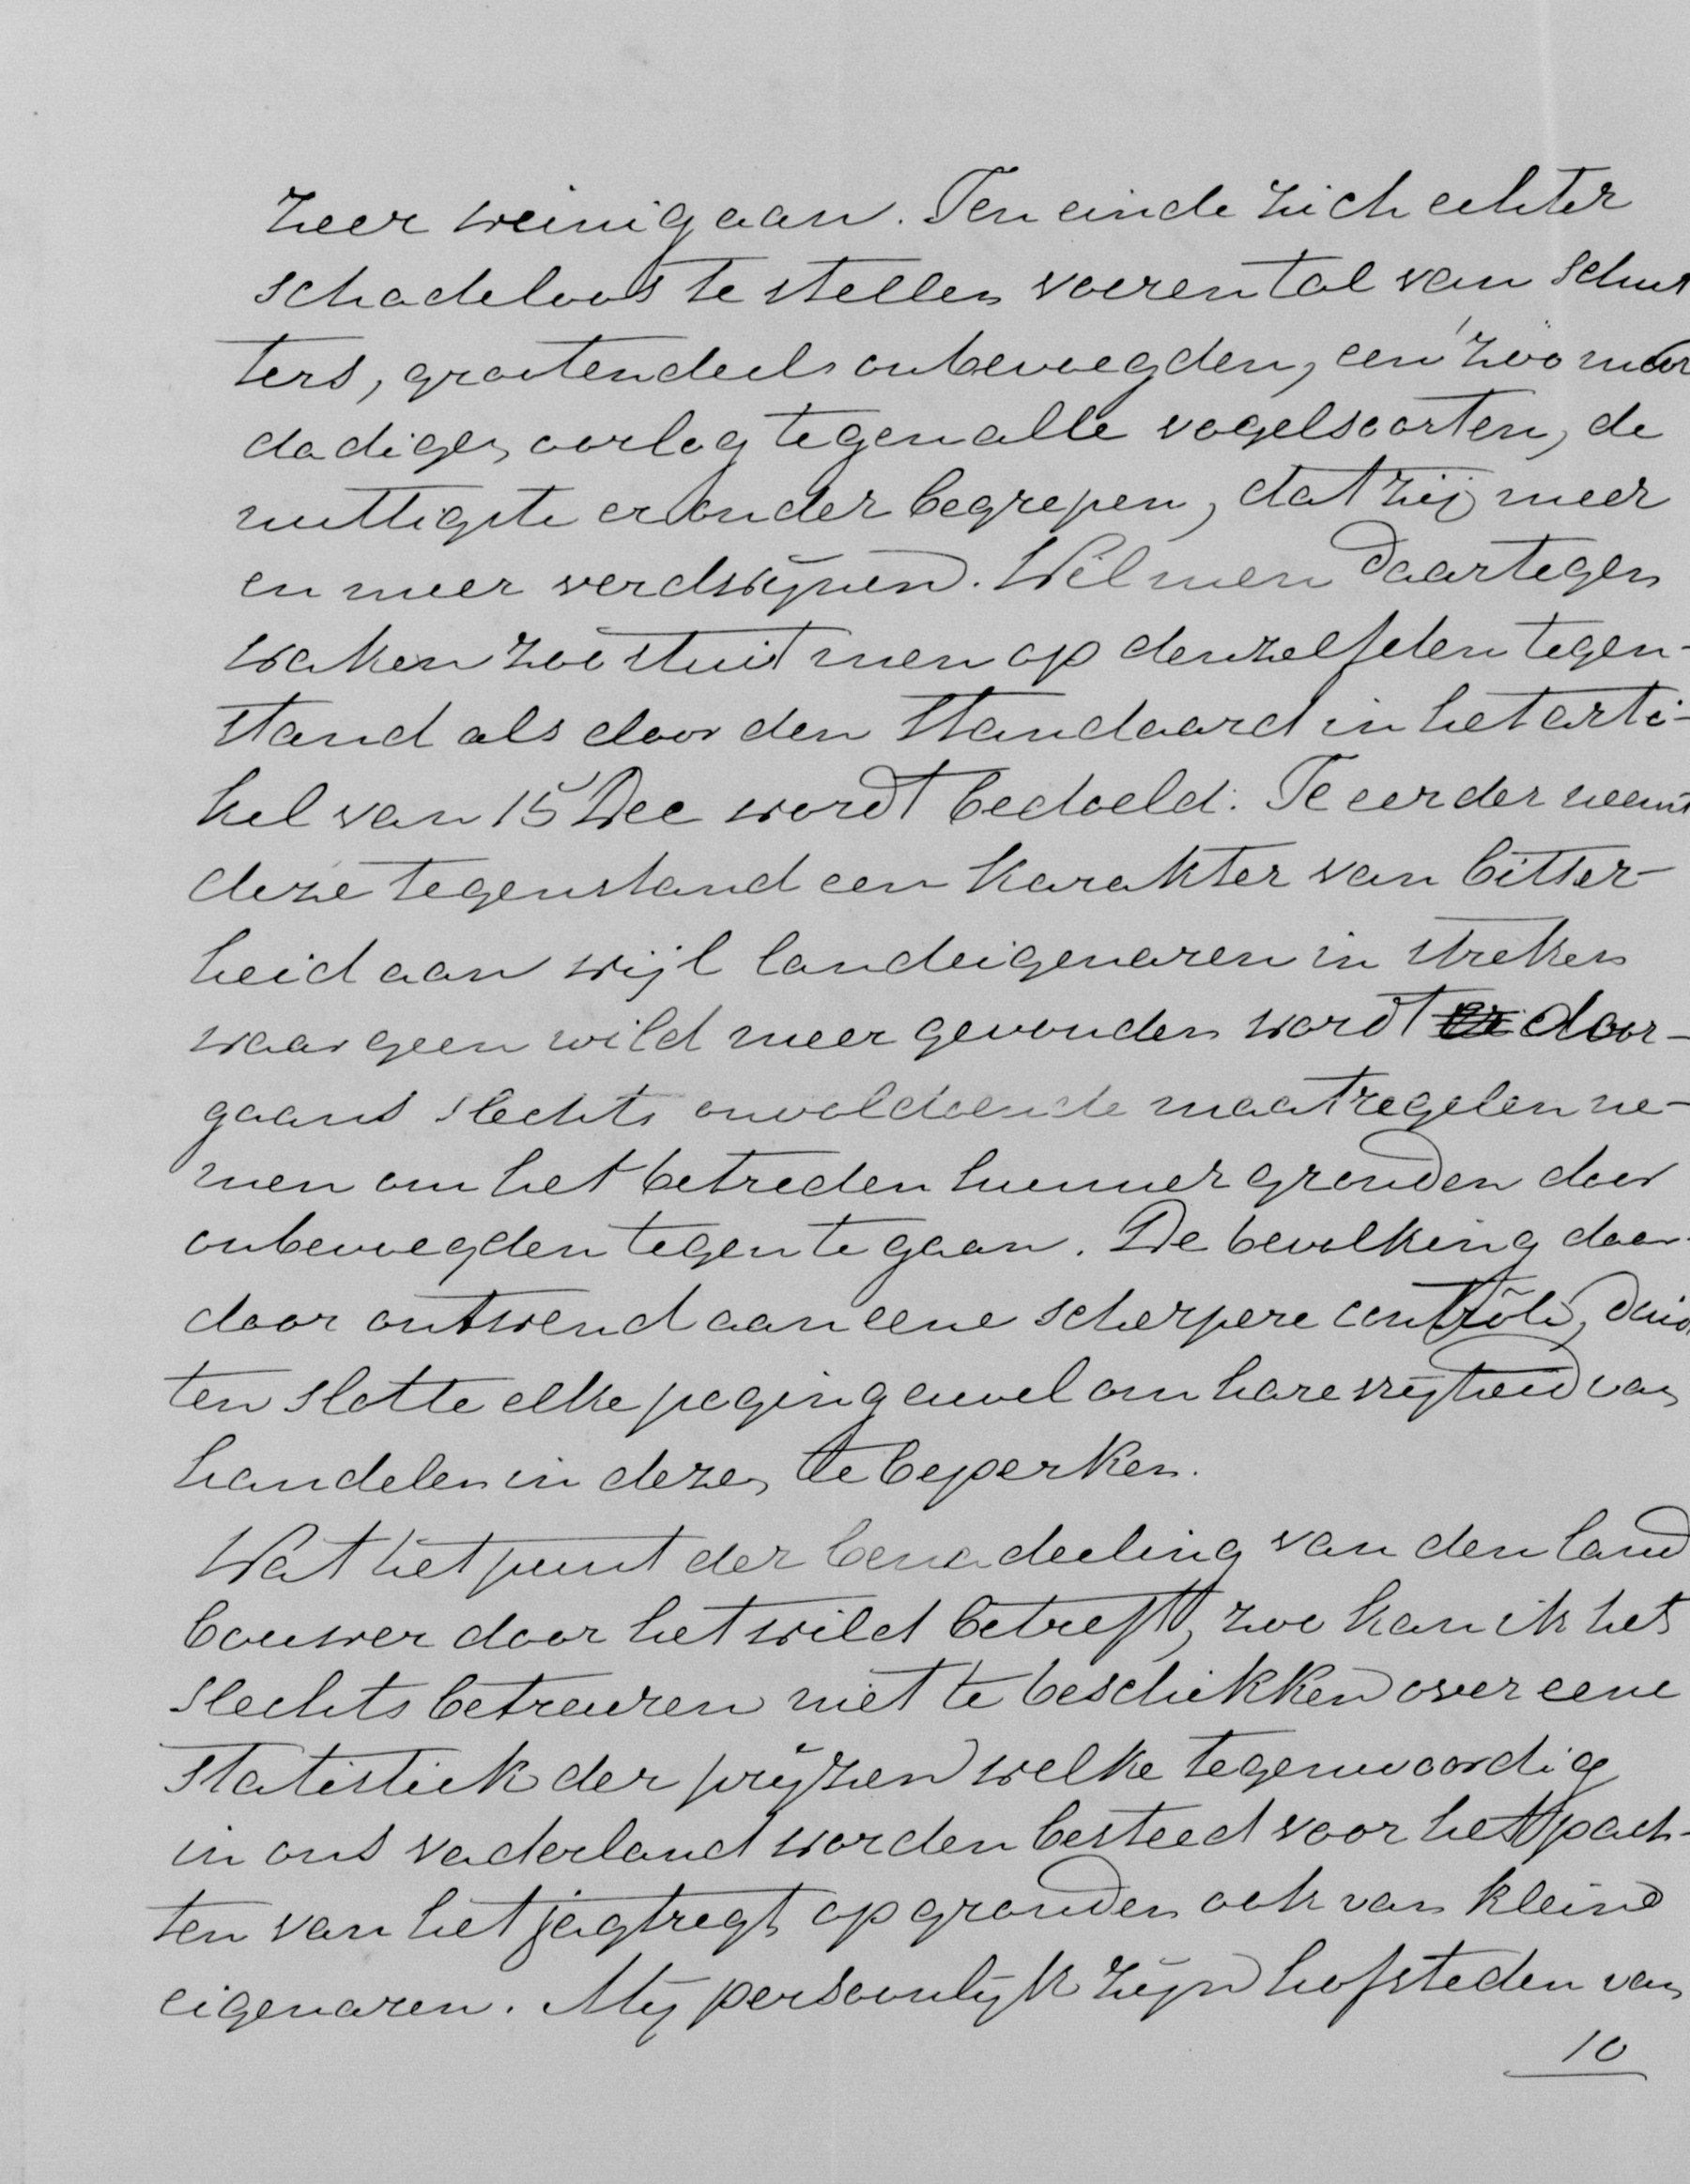 zeer weinig aan. Ten einde zich echter
schadeloos te stellen voeren tal van schut
ters, grootendeels onbevoegden, een zoo moor
dadigen oorlog tegen alle vogelsoorten, de
nuttigste er onder begrepen, dat zij meer
en meer verdwijnen. Wil men daartegen
waken zoo stuit men op denzelfden tegen-
stand als door den Standaard in het arti-
kel van 15 Dec wordt bedoeld. Te eerder neemt
deze tegenstand een karakter van bitter-
heid aan wijl landeigenaren in streken
waar geen wild meer gevonden wordt er door-
gaans slechts onvoldoende maatregelen ne-
men om het betreden hunner gronden door
onbevoegden tegen te gaan. De bevolking daar-
door ontwend aan eene scherpere contrôle, duidt
ten slotte elke poging euvel om hare vrijheid van
handelen in dezen te beperken.
Wat het punt der benadeeling van den land
bouwer door het wild betreft, zoo kan ik het
slechts betreuren niet te beschikken over eene
statistiek der prijzen welke tegenwoordig
in ons vaderland worden besteed voor het pach-
ten van het jagtregt op gronden ook van kleine
eigenaren. Mij persoonlijk zijn hofsteden van
10